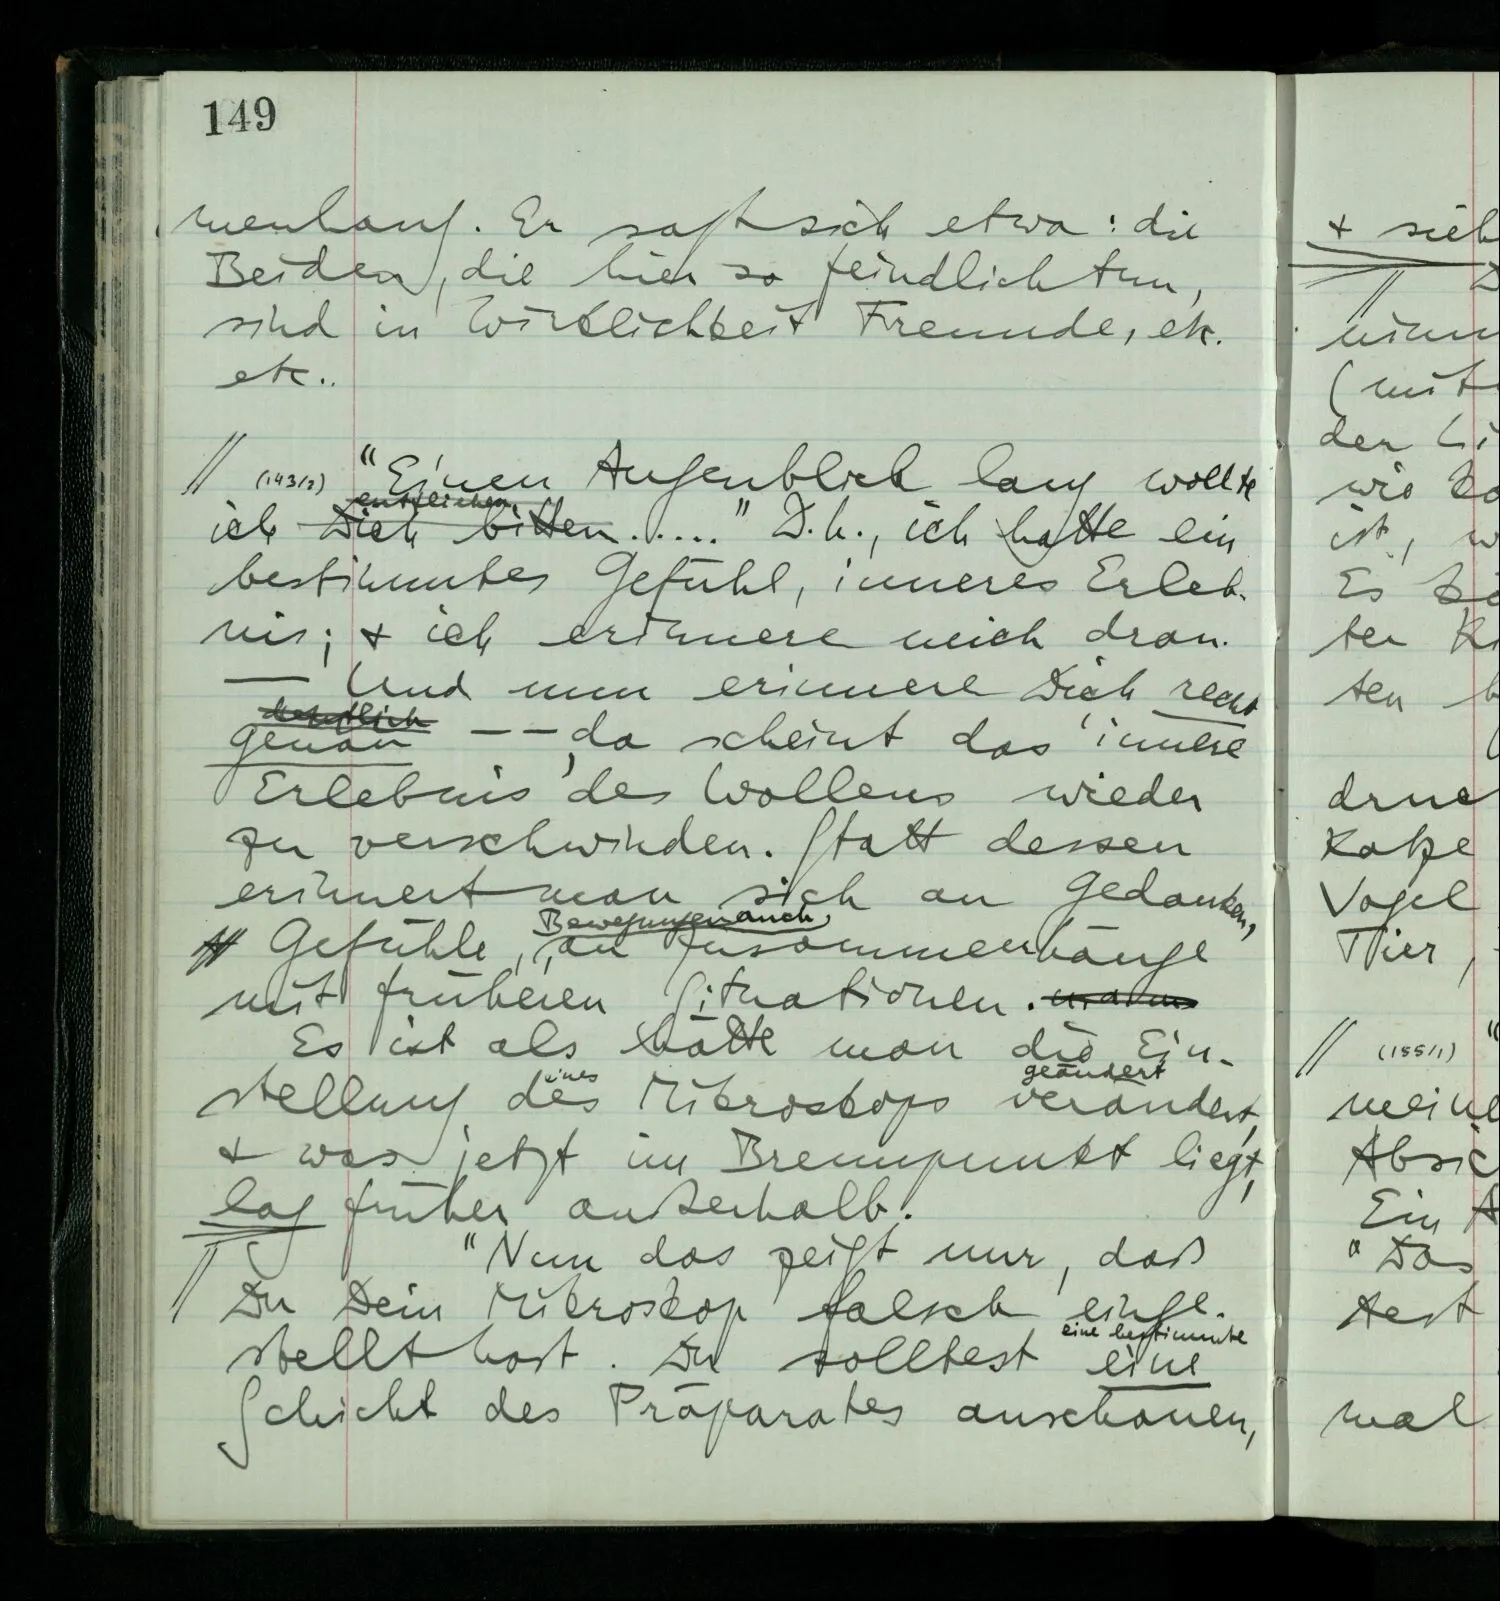 149
menhang. Er sagt sich etwa: die
Beiden, die hier so feindlich tun,
sind in Wirklichkeit Freunde, etc.
etc..
// (143/2) "Einen Augenblick lang wollte
ich Dich bitten....." D.h., ich hatte ein
bestimmtes Gefühl, inneres Erleb-
nis; & ich erinnere mich dran.
— Und nun erinnere Dich recht
deutlich
genau –– , da scheint das 'innere
Erlebnis' des Wollens wieder
zu verschwinden. Statt dessen
erinnert man sich an Gedanken,
Bewegungen, auch
Gefühle, an Zusammenhänge
mit früheren Situationen.
Es ist als hätte man die Ein-
eines geändert
stellung des Mikroskops verändert,
& was jetzt im Brennpunkt liegt,
lag früher außerhalb.
"Nun das zeigt nur, daß
// Du Dein Mikroskop falsch einge-
eine bestimmte
stellt hast. Du solltest eine
Schicht des Präparates anschauen,
& sieh
(mit
der
wie
ist, w
Es
ten
ten b
Katze
Vogel
Tier,
// (155/1) "
meine
Absic
Ein
"Das
mal